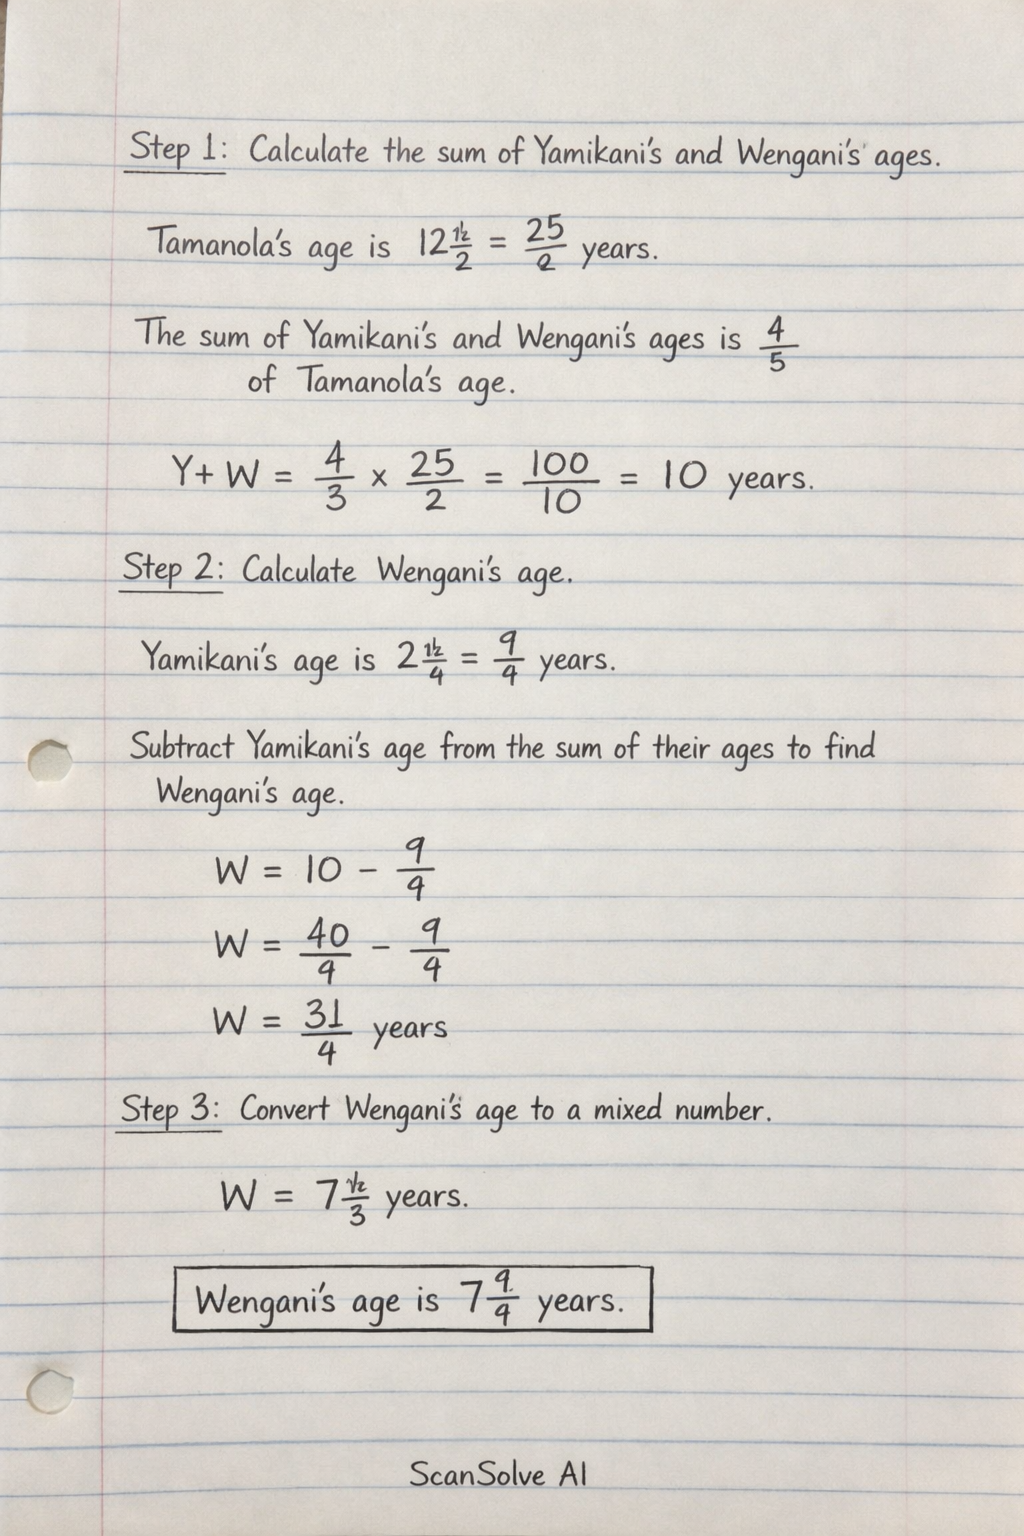 Step 1: Calculate the sum of Yamikani's and Wengani's ages.
Tamanola's age is 12 ½/2 = 25/2 years.
The sum of Yamikani's and Wengani's ages is 4/5
of Tamanola's age.
Y + W = 4/3 x 25/2 = 100/10 = 10 years.
Step 2: Calculate Wengani's age.
Yamikani's age is 2 ½/4 = 9/4 years.
Subtract Yamikani's age from the sum of their ages to find
Wengani's age.
W = 10 - 9/9
W = 40/9 - 9/4
W = 31/4 years
Step 3: Convert Wengani's age to a mixed number.
W = 7 ½/3 years.
Wengani's age is 7 9/9 years.
ScanSolve AI